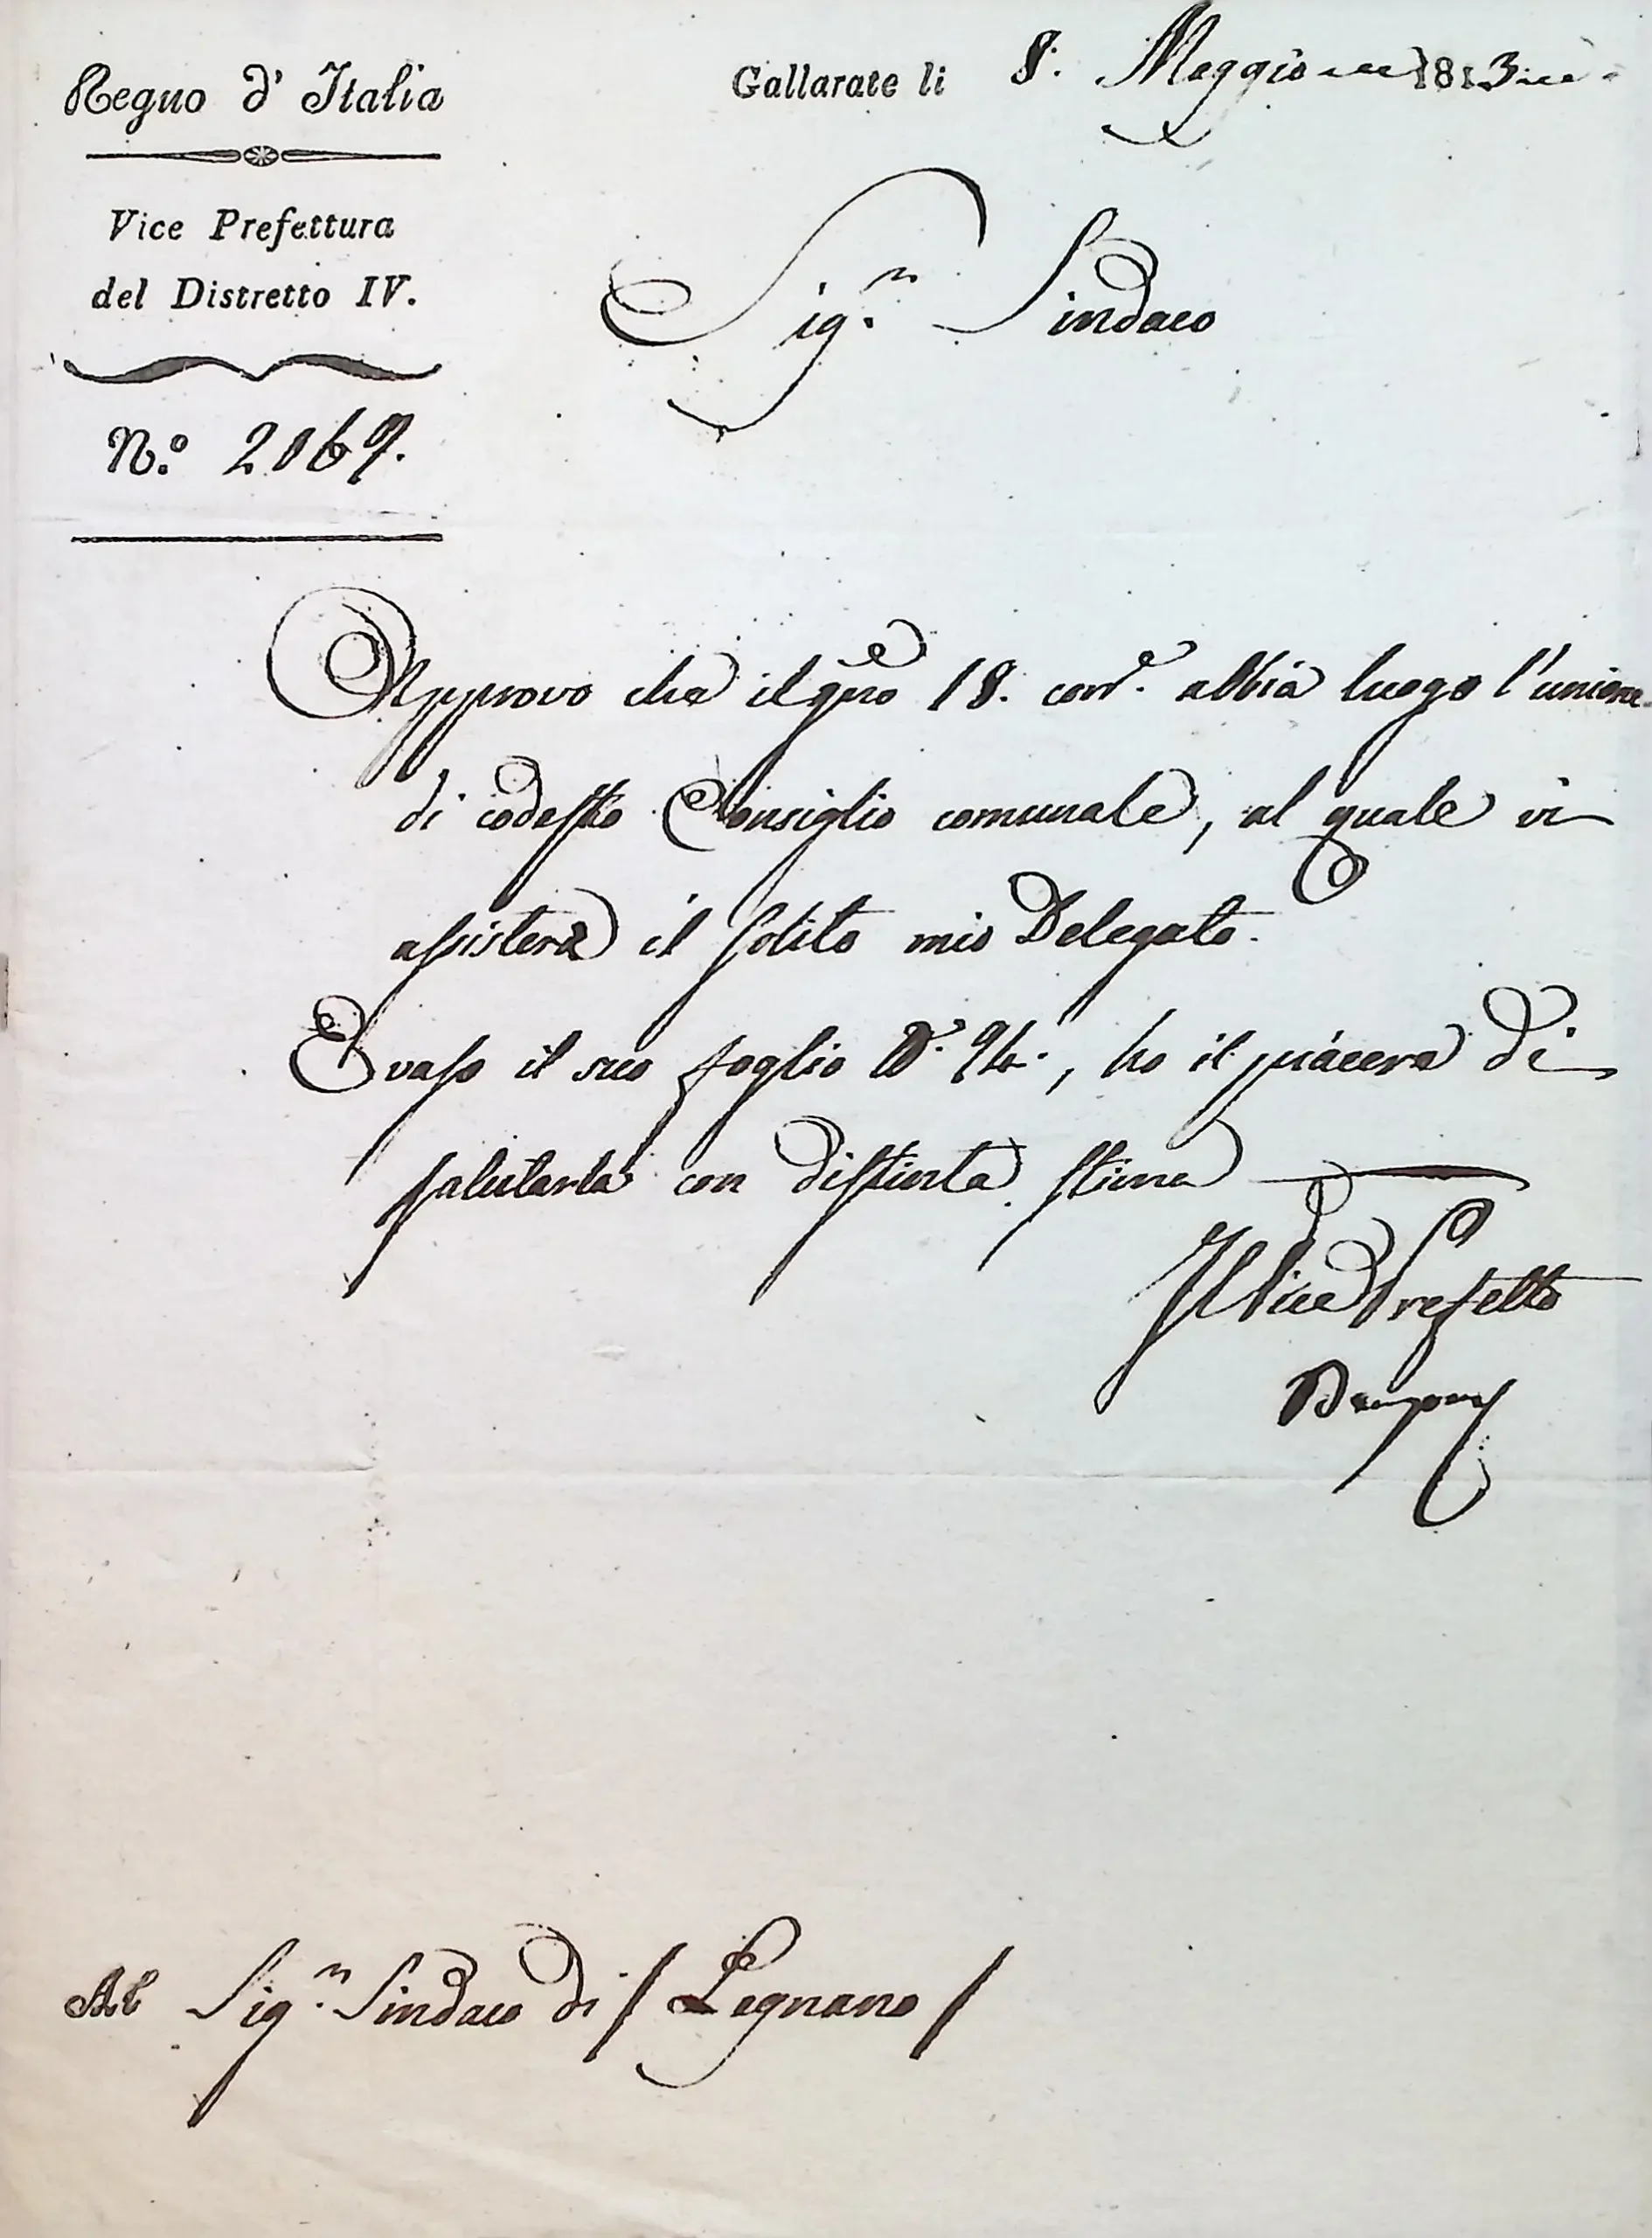 Regno d' Italia
Gallarate li 8. Maggio 1813
Vice Prefettura
del Distretto IV.
N.° 2169.
Sig.r Sindaco
Approvo che il gno 18. corr.e abbia luogo l'unione
di codesto Consiglio comunale, al quale vi
assisterà il solito mio Delegato.
Evaso il suo foglio N.° 94., ho il piacere di
salutarla con distinta stima
Il Vice Prefetto
Al Sig.r Sindaco di / Legnano /